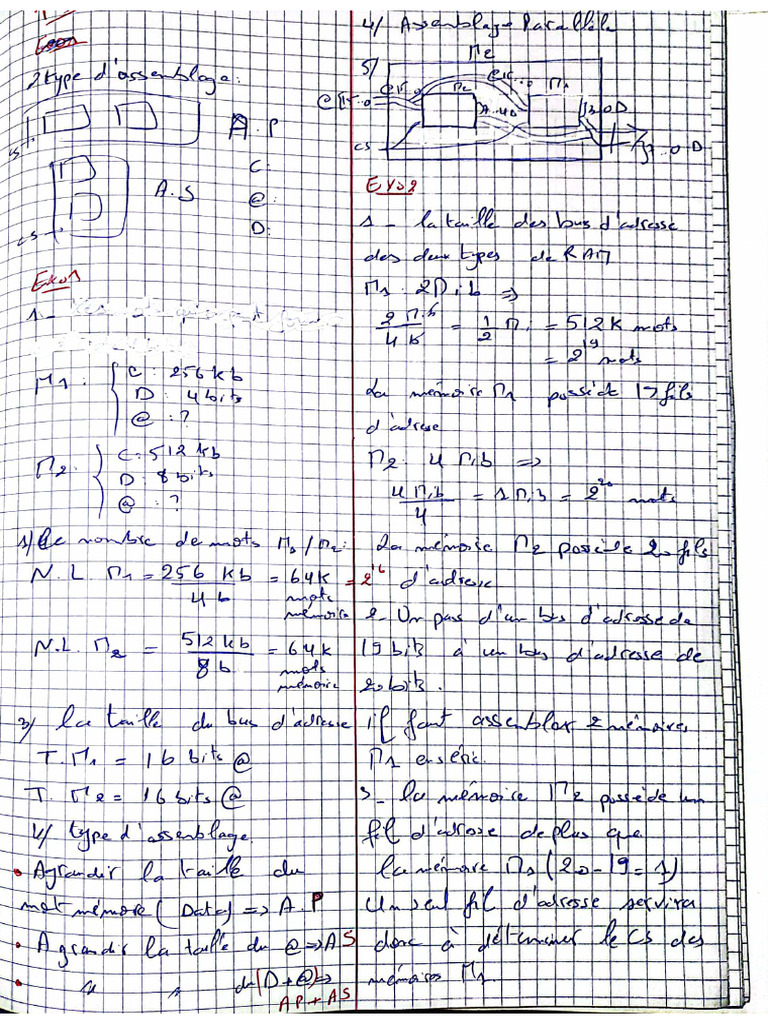 2 type d'assemblage:
A.P
CS
C:
@:
D:
A.S
CS
Exo1
1-
M1: C: 256 kb
D: 4 bits
@: ?
M2: C: 512 kb
D: 8 bits
@: ?
1/ le nombre de mots M1/M2:
N.L. M1 = 256 kb / 4 b = 64 K = 2^16
mots
mémoire
N.L. M2 = 512 kb / 8 b = 64 K
mots
mémoire
3/ la taille du bus d'adresse
T. M1 = 16 bits @
T. M2 = 16 bits @
4/ type d'assemblage.
• Agrandir la taille du
mot mémoire (Data) => A.P
• Agrandir la taille du @ => AS
• " " du (D+@) =>
AP + AS
4/ Assemblage Parallèle
5/
M2
@15..0
@15..0
@15..0
M1
CS
Exo2
1 - la taille des bus d'adresse
des deux types de RAM
M1: 2 Mib =>
2 Mib / 4 b = 1/2 Mi = 512 K mots
= 2^19 mots
La mémoire M1 possède 19 fils
d'adresse
M2: 4 Mib =>
4 Mib / 4 = 1 Mib = 2^20 mots
La mémoire M2 possède 20 fils
d'adresse
2 - On pas d'un bus d'adresse de
19 bit à un bus d'adresse de
20 bit.
il faut assembler 2 mémoires
M1 en série.
3 - la mémoire M2 possède un
fil d'adresse de plus que
la mémoire M1 (20-19=1)
Un seul fil d'adresse servira
donc à déterminer le CS des
mémoires M1